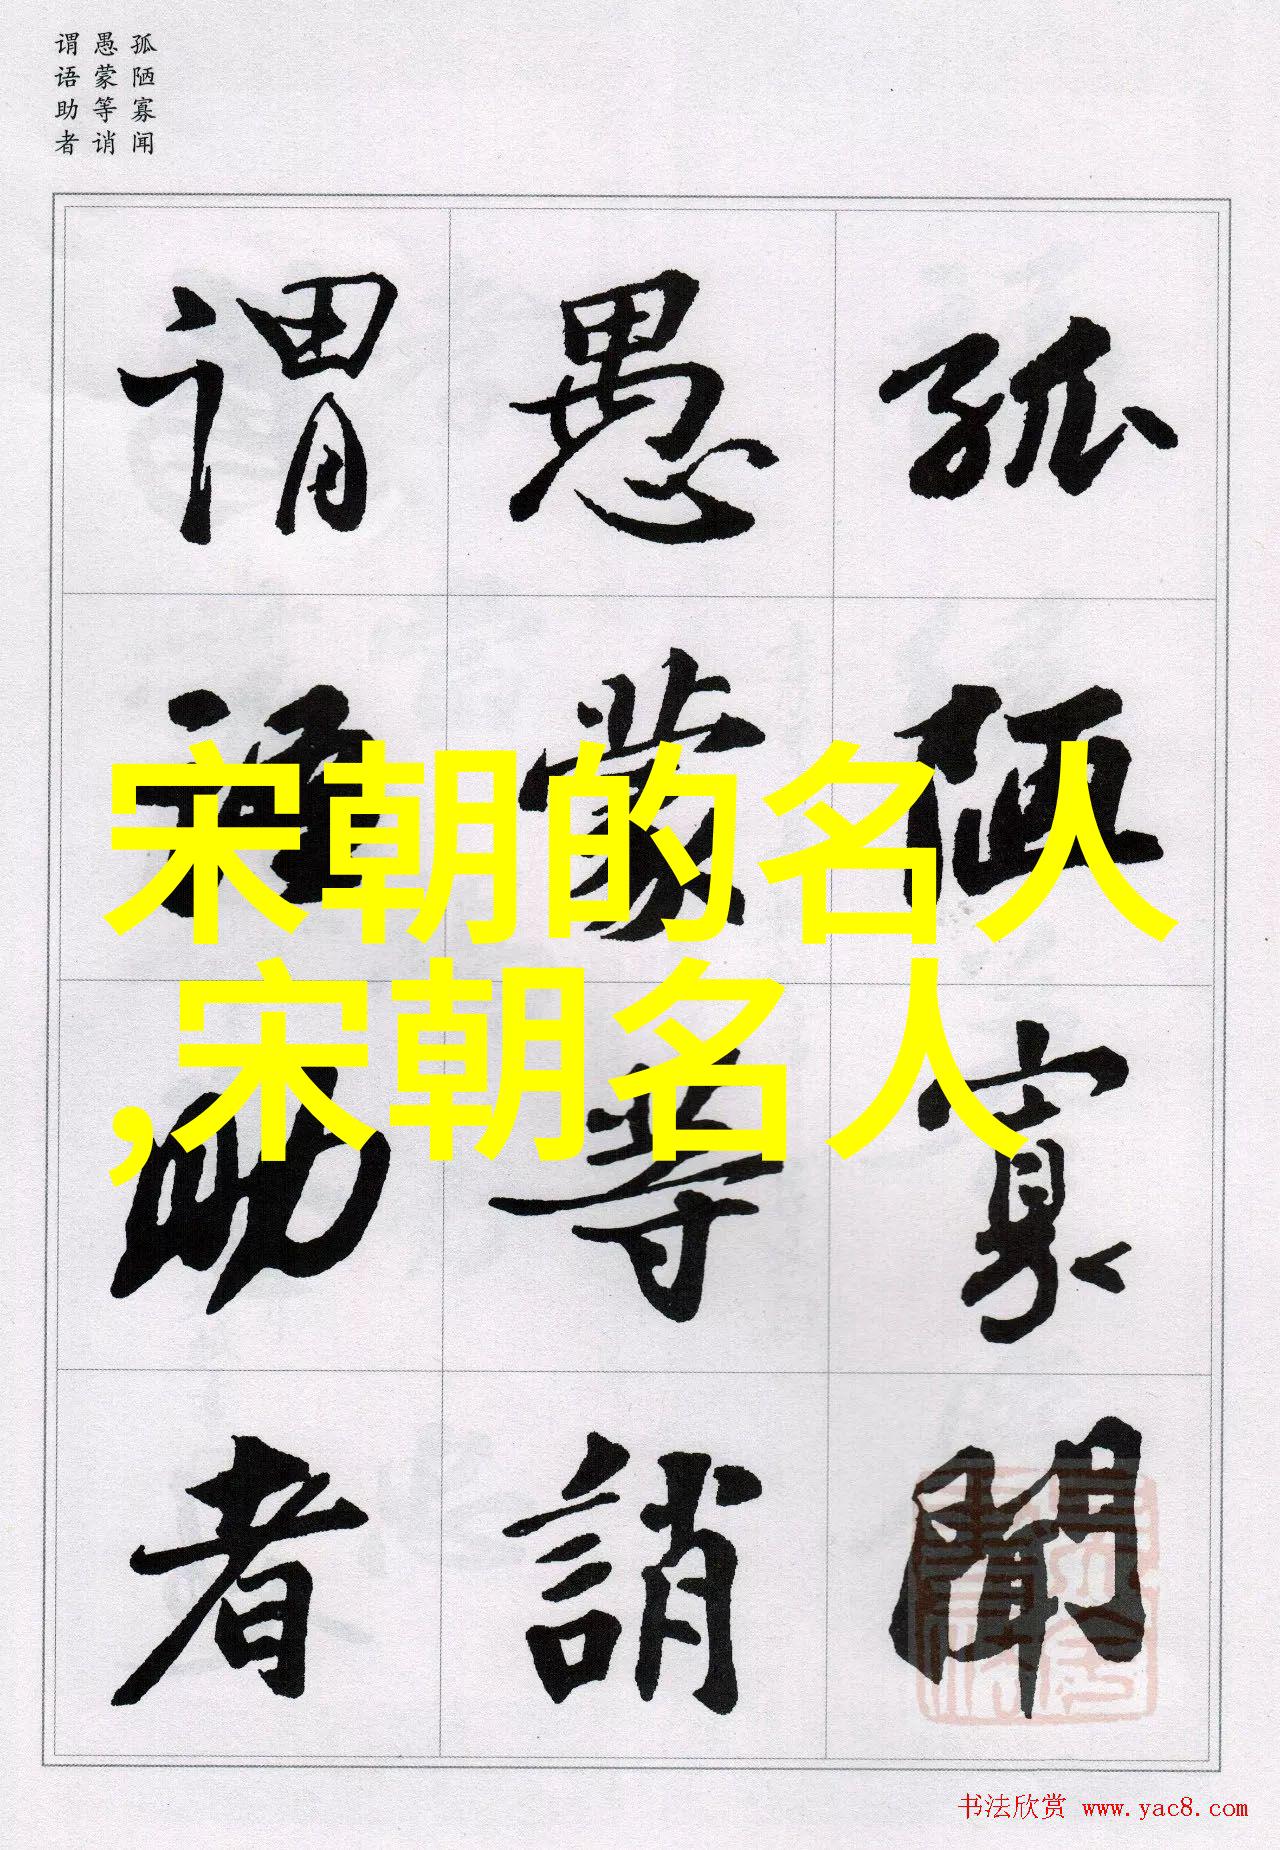 孤陋寡闻
愚蒙等诮
谓语助者
孤陋寡聞
愚蒙等誚
谓语助者
宋朝的名人
,宋朝名人
书法欣赏 www.yac8.com